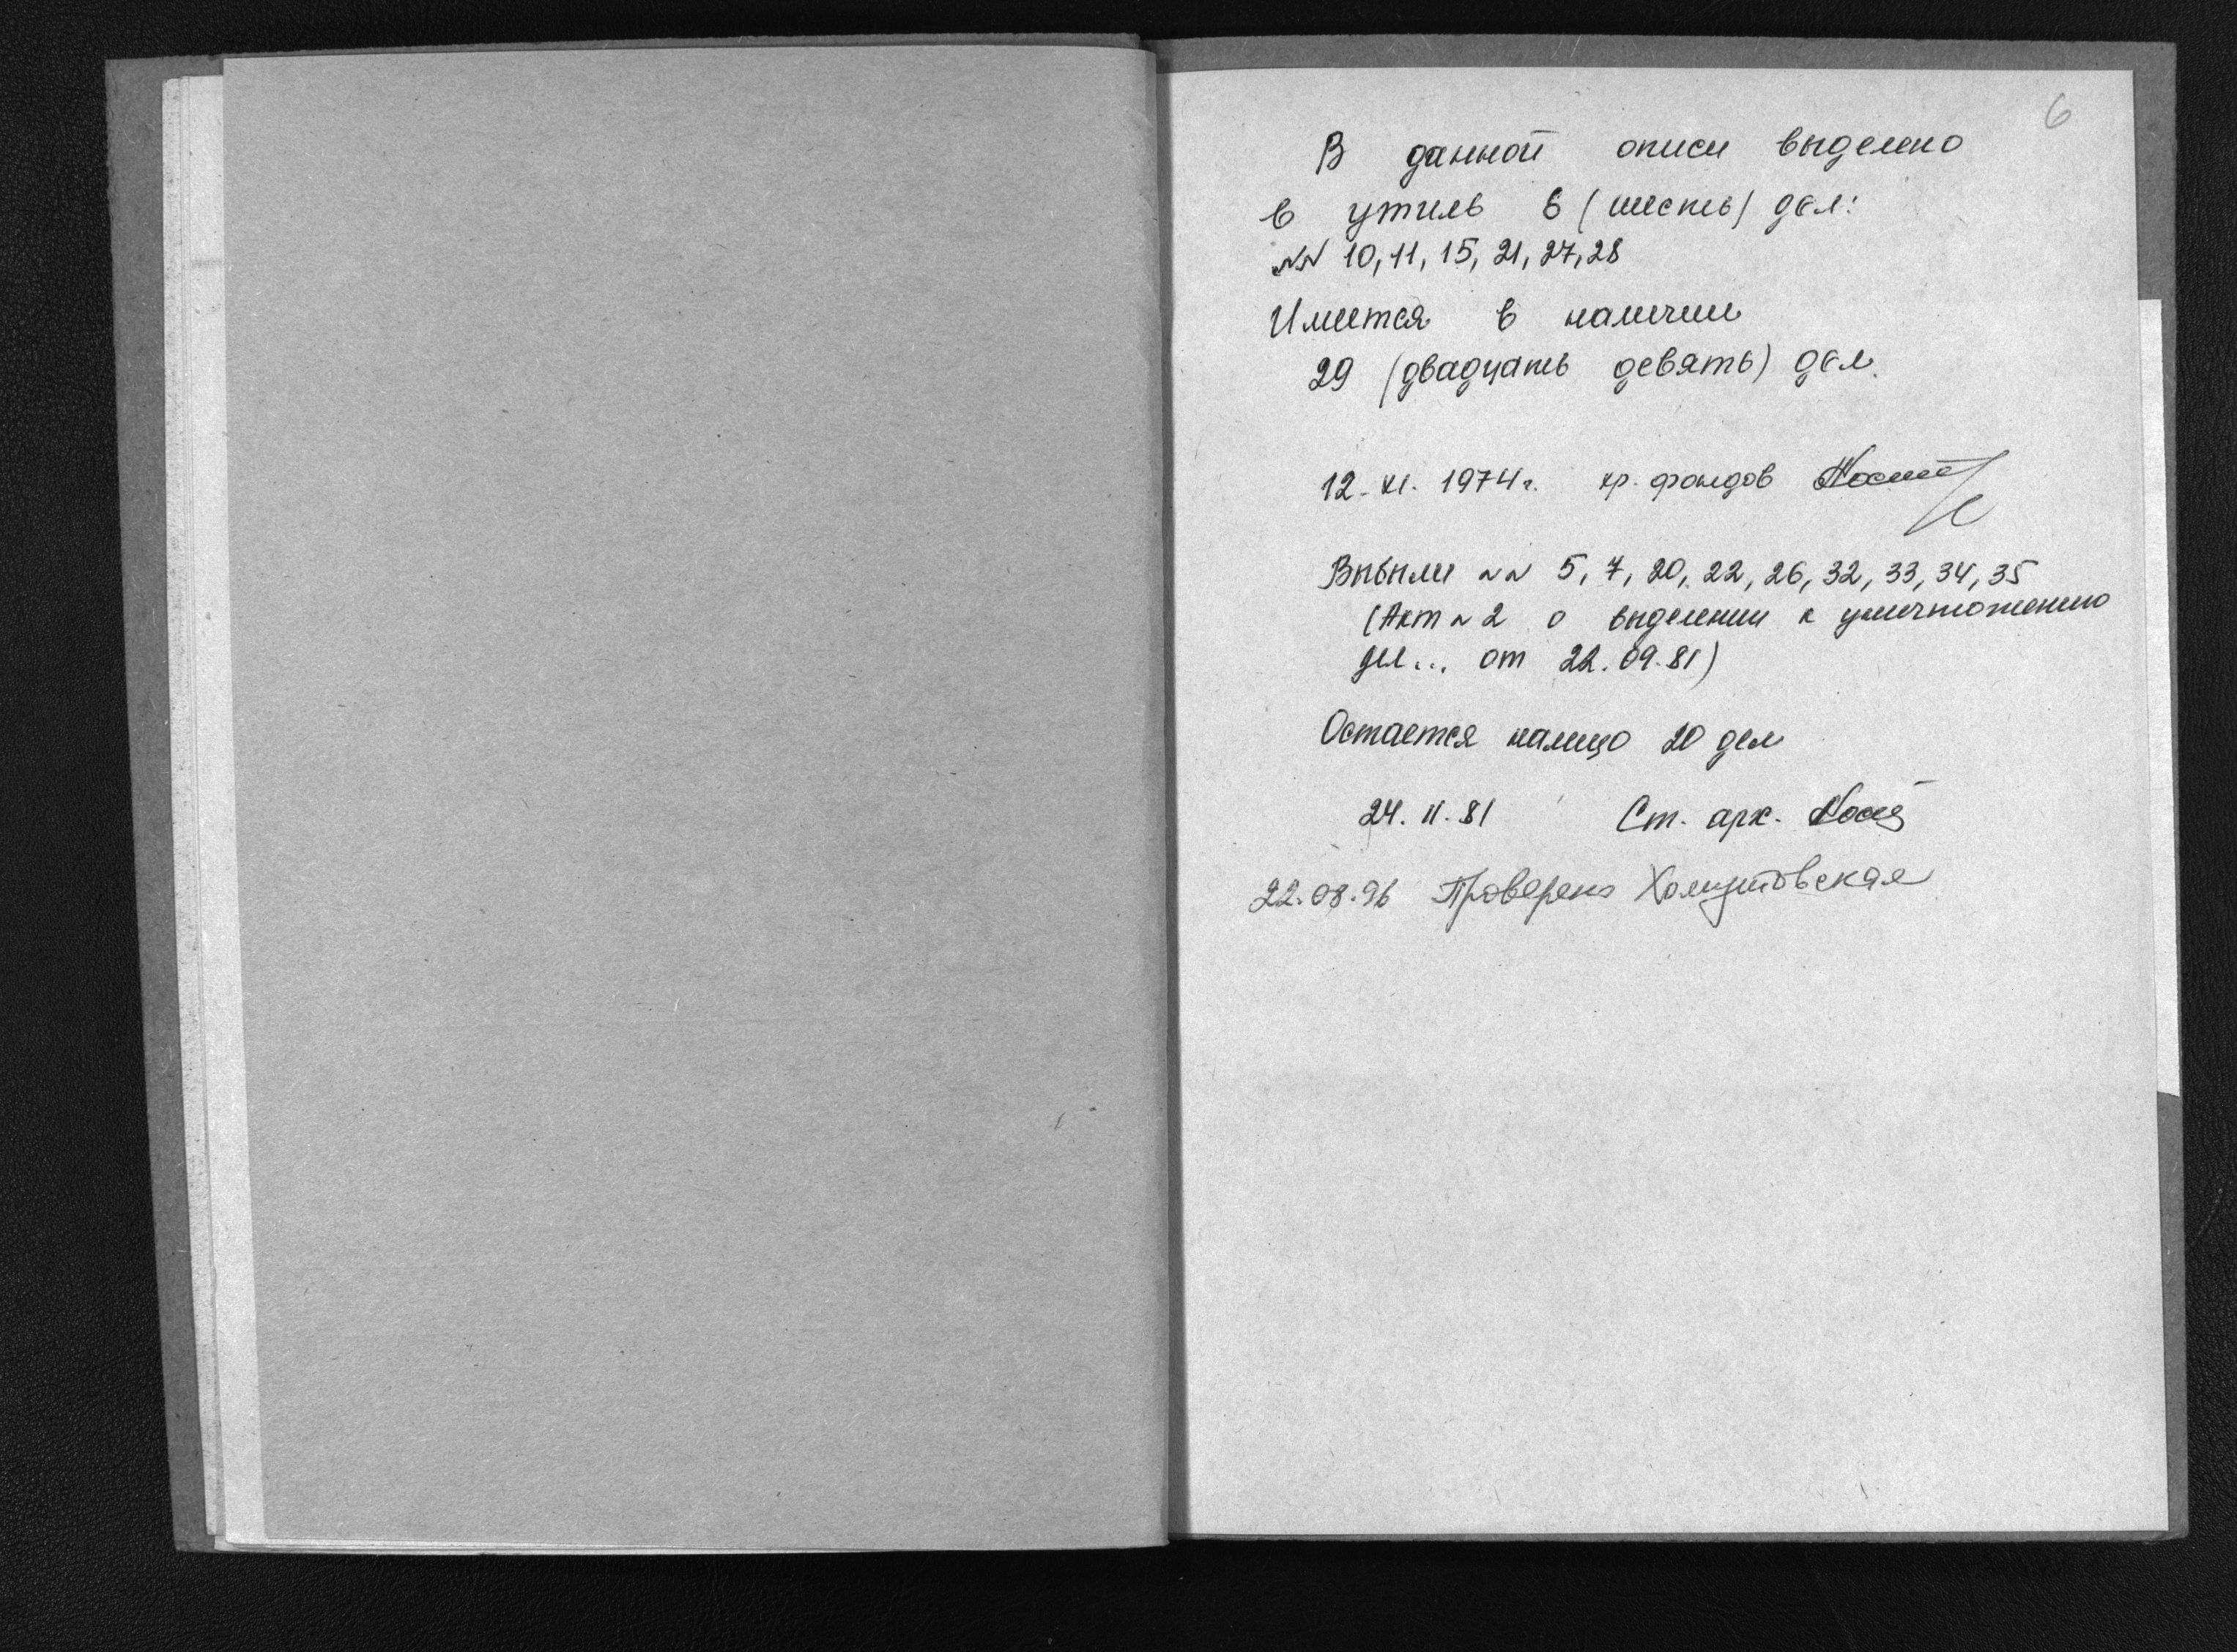 6
В данной описи выделено
в утиль 6 (шесть) дел:
№№ 10, 11, 15, 21, 27, 28
Имеется в наличии
29 (двадцать девять) дел.
12. XI. 1974 г. хр. фондов
Выбыли №№ 5, 7, 20, 22, 26, 32, 33, 34, 35
(Акт № 2 о выделении к уничтожению
дел... от 22.09.81)
Остается налицо 20 дел
24. II. 81 Ст. арх.
22.08.96 Проверено Хомутовская